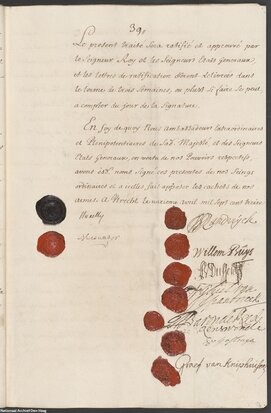 39.
Le present traité sera ratifié et approuvé par
le Seigneur Roy et les Seigneurs Etats Generaux,
et les lettres de ratification seront delivrées dans
le terme de trois semaines, ou plutot si faire se peut
a compter du jour de la Signature.
En foy de quoy Nous ambassadeurs extraordinaires
et Plenipotentiaires de Sad. Majesté et des Seigneurs
Etats Generaux, en vertu de nos Pouvoirs respectifs,
avons esd. noms Signé ces presentes de nos Seings
ordinaires et a icelles fait apposer les cachets de nos
armes. a Utrecht le onzieme avril mil sept cens treize
Huxelles
Mesnager
Willem Buys
Graef van Kniphuisen
Nationaal Archief Den Haag